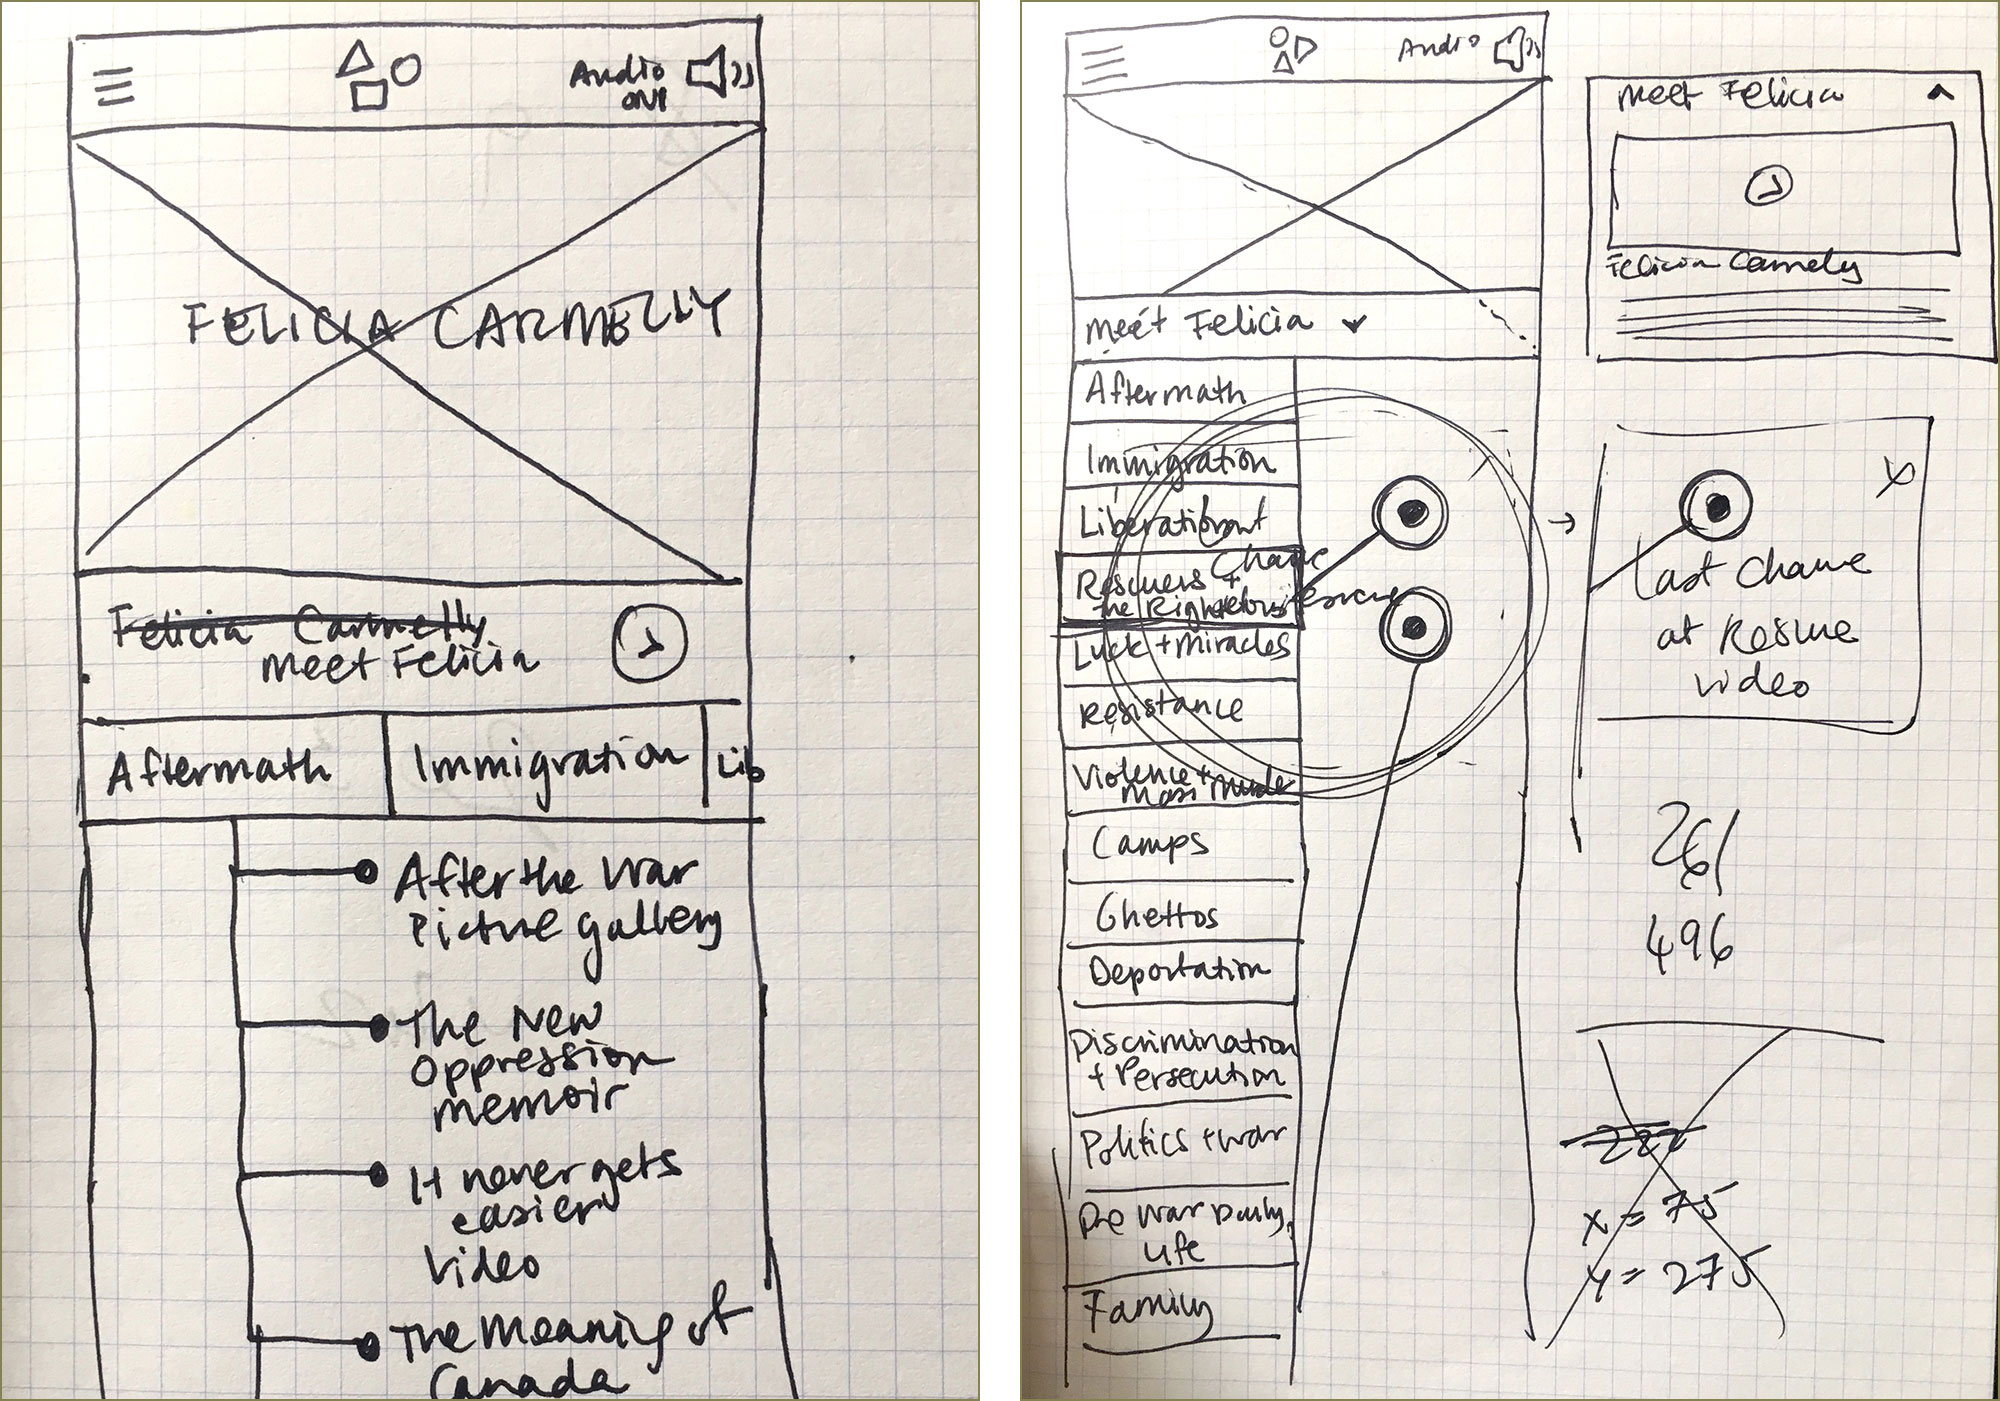 Audio
ON
FELICIA CARMELLY
Felicia Carmelly
meet Felicia
Aftermath
Immigration
Lib
After the War
Picture gallery
The New
Oppression
memoir
It never gets
easier
Video
The Meaning of
Canada
Audio
meet Felicia
Aftermath
Immigration
Liberation
Chance
Rescuers +
the Righteous
rescue
Luck + miracles
Resistance
Violence +
Mass murder
Camps
Ghettos
Deportation
Discrimination
+ Persecution
Politics + war
Pre war Daily
Life
Family
meet Felicia
Felicia Carmely
X
Last Chance
at Rescue
video
261
496
x = 75
y = 275